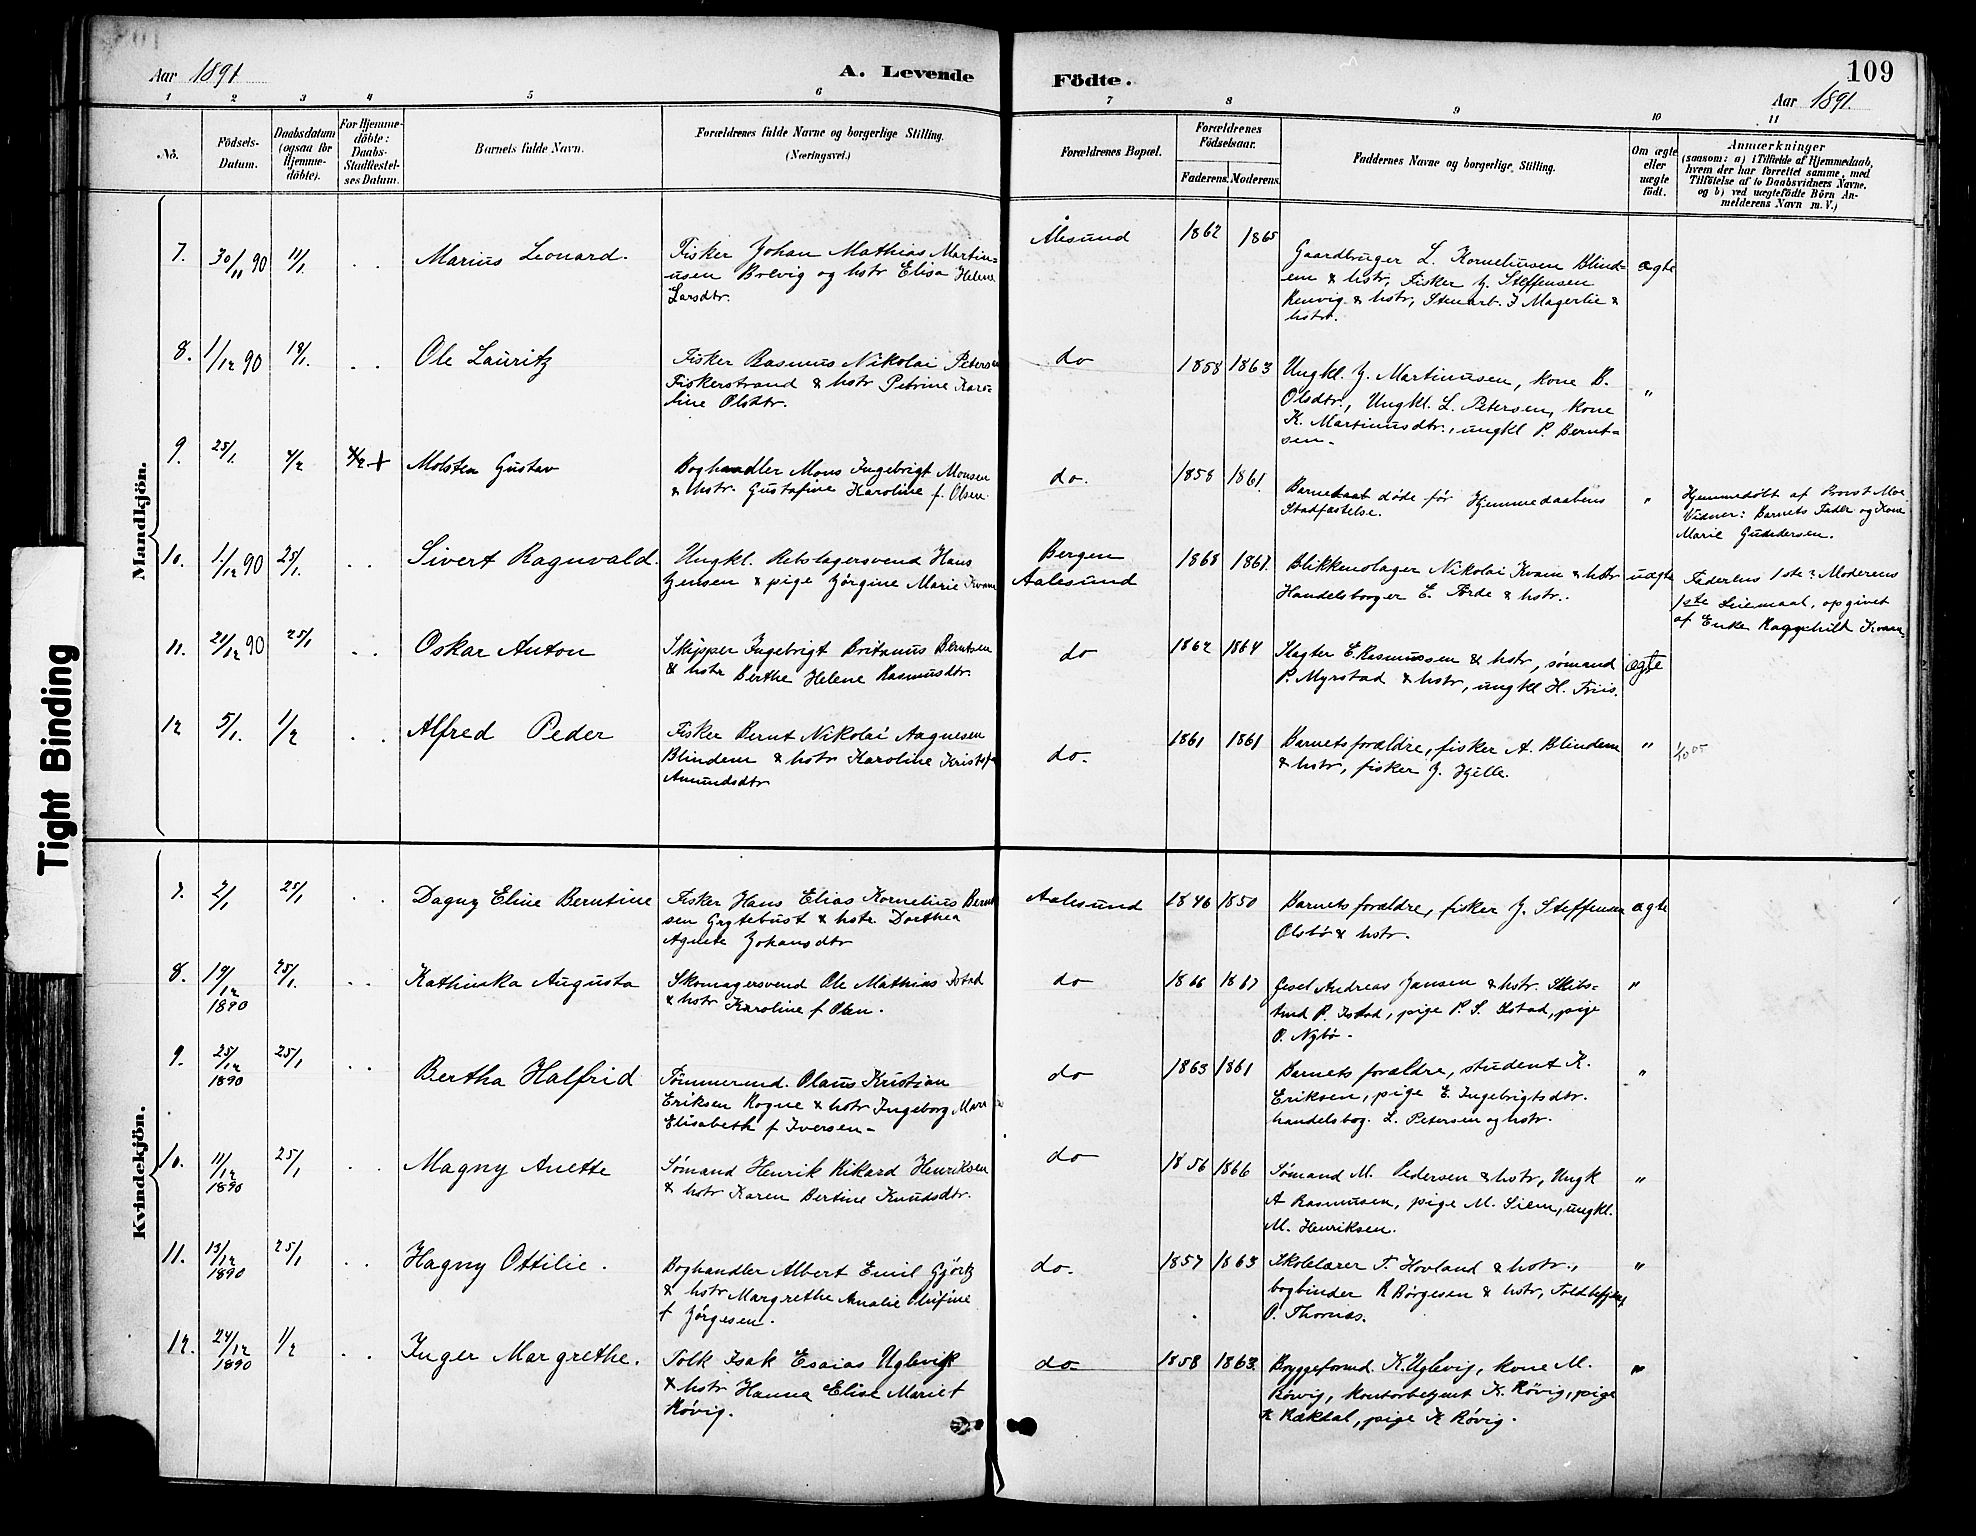 Aar 1891
A. Levende Födte.
109
Aar 1891.
1 2 3 4 5 6 7 8 9 10 11
No.
Födsels-Datum.
Daabsdatum (ogsaa for Hjemme-döbte).
For Hjemme-döbte: Daabs-Stadfæstel-ses Datum.
Barnets fulde Navn.
Forældrenes fulde Navne og borgerlige Stilling. (Næringsvei.)
Forældrenes Bopæl.
Forældrenes Födselsaar.
Faderens. Moderens.
Faddernes Navne og borgerlige Stilling.
Om ægte eller uægte födt.
Anmærkninger
(saasom: a) i Tilfælde af Hjemmedaab,
hvem der har forrettet samme, med
Tilföielse af to Daabsvidners Navne.
og b) ved uægtefödte Börn An-
melderens Navn m. V.)
Tight Binding
Mandkjön.
7. 30/11 90 11/1 . . Marius Leonard.
Fisker Johan Mathias Martin-
usen Brevig og hstr Elisa Helene
Larsdtr.
Ålesund 1862 1865
Gaardbruger L. Korneliusen Blind-
em & hstr, Fisker J. Steffensen
& hstr, Stenarb. J Magerlie &
hstr.
ægte
8. 1/12 90 18/1. . . Ole Lauritz
Fisker Rasmus Nikolai Petersen
Fiskerstrand & hstr Petrine Karo-
line Olsdtr.
do 1858 1863
Ungkl. J. Martinusen, kone B.
Olsdtr., Ungkl. L. Petersen, kone
K. Martinusdtr., ungkl P. Bernt-
sen.
"
9. 25/1. 4/2 + Molsten Gustav
Boghandler Mons Ingebrigt Monsen
& hstr. Gustafine Karoline f. Olsen
do. 1858 1861.
døde før Hjemmedaabens
Stadfæstelse.
"
Hjemmedöbt af Provst Moe
Vidner: Barnets Fader og Kone
Marie Gundersen.
10. 1/12 90 25/1. . . Sivert Ragnvald.
Ungkl. Rebslagersvend Hans
Jensen & pige Jørgine Marie Kvam
Bergen
Aalesund
1868 1861.
Blikkenslager Nikolai Kvam & hstr
Handelsborger E. Førde & hstr..
uægte
Faderens 1ste? Moderens
1ste Leiemaal, opgivet
af Enke Raggehilt Kvam
11. 21/12 90 25/1 . . Oskar Anton
Skipper Ingebrigt Britanus Berntsen
& hstr Berthe Helene Rasmusdtr.
do 1862 1864
Slagter E. Rasmussen & hstr, sømand
P. Myrstad & hstr, ungkl H. Friis.
ægte
12 5/1. 1/2 . . Alfred Peder
Fisker Bernt Nikolai Aagnesen
Blindem & hstr Karoline
Amundsdtr
do. 1861 1861
Barnets forældre, fisker A. Blindem
& hstr, fisker J. Hjelle.
"
Kvindekjön.
7. 2/1 25/1 . . Dagny Eline Berntine
Fisker Hans Elias Kornelius Bernt
sen Grytebust & hstr Dorthea
Agnete Johansdtr
Aalesund 1846 1850
Barnets forældre, fisker J. Steffensen
Olsbö & hstr.
ægte
8. 19/12 1890 25/1. . . Kathinka Augusta
Skomagersvend Ole Mathias Istad
& hstr Karoline f Olsen.
do 1866 1867
Gesel Andreas Jansen & hstr. Skibs-
tmd P. Istad, pige P. S. Istad, pige
O. Nybø.
"
9. 25/12 1890 25/1 . . Bertha Halfrid
Tømmermd. Olaus Kristian
Eriksen Rogne & hstr Ingeborg Marie
Elisabeth f Iversen
do 1863 1861
Barnets forældre, student K.
Eriksen, pige E. Ingebrigtsdtr.
handelsbog. L. Petersen og hstr.
"
10. 11/12 1890 25/1 . . Magny Anette
Sømand Henrik Rikard Henriksen
& hstr Karen Bertine Knudsdtr.
do 1856 1866
Sømand M. Pedersen & hstr, Ungk
A Rasmussen, pige M. Siem, ungkl.
M. Henriksen.
"
11. 13/12 1890 25/1 . . Hagny Ottilie.
Boghandler Albert Emil Gjörtz
& hstr Margrethe Amalie Olufine
f Jørgesen.
do. 1857 1863
Skolelærer T. Hovland & hstr.,
bogbinder R Børgesen & hstr,
O. Thomas.
"
12. 24/12 1890 1/2 . . Inger Margrethe.
Tolk Isak Esaias Uglevik
& hstr Hanna Elise Marie f
Røvig.
do 1858 1863.
Bryggeformd. K. Uglevig, kone M.
Røvig, kontorbetjent K. Røvig, pige
K Ræktal, pige K Røvig.
"